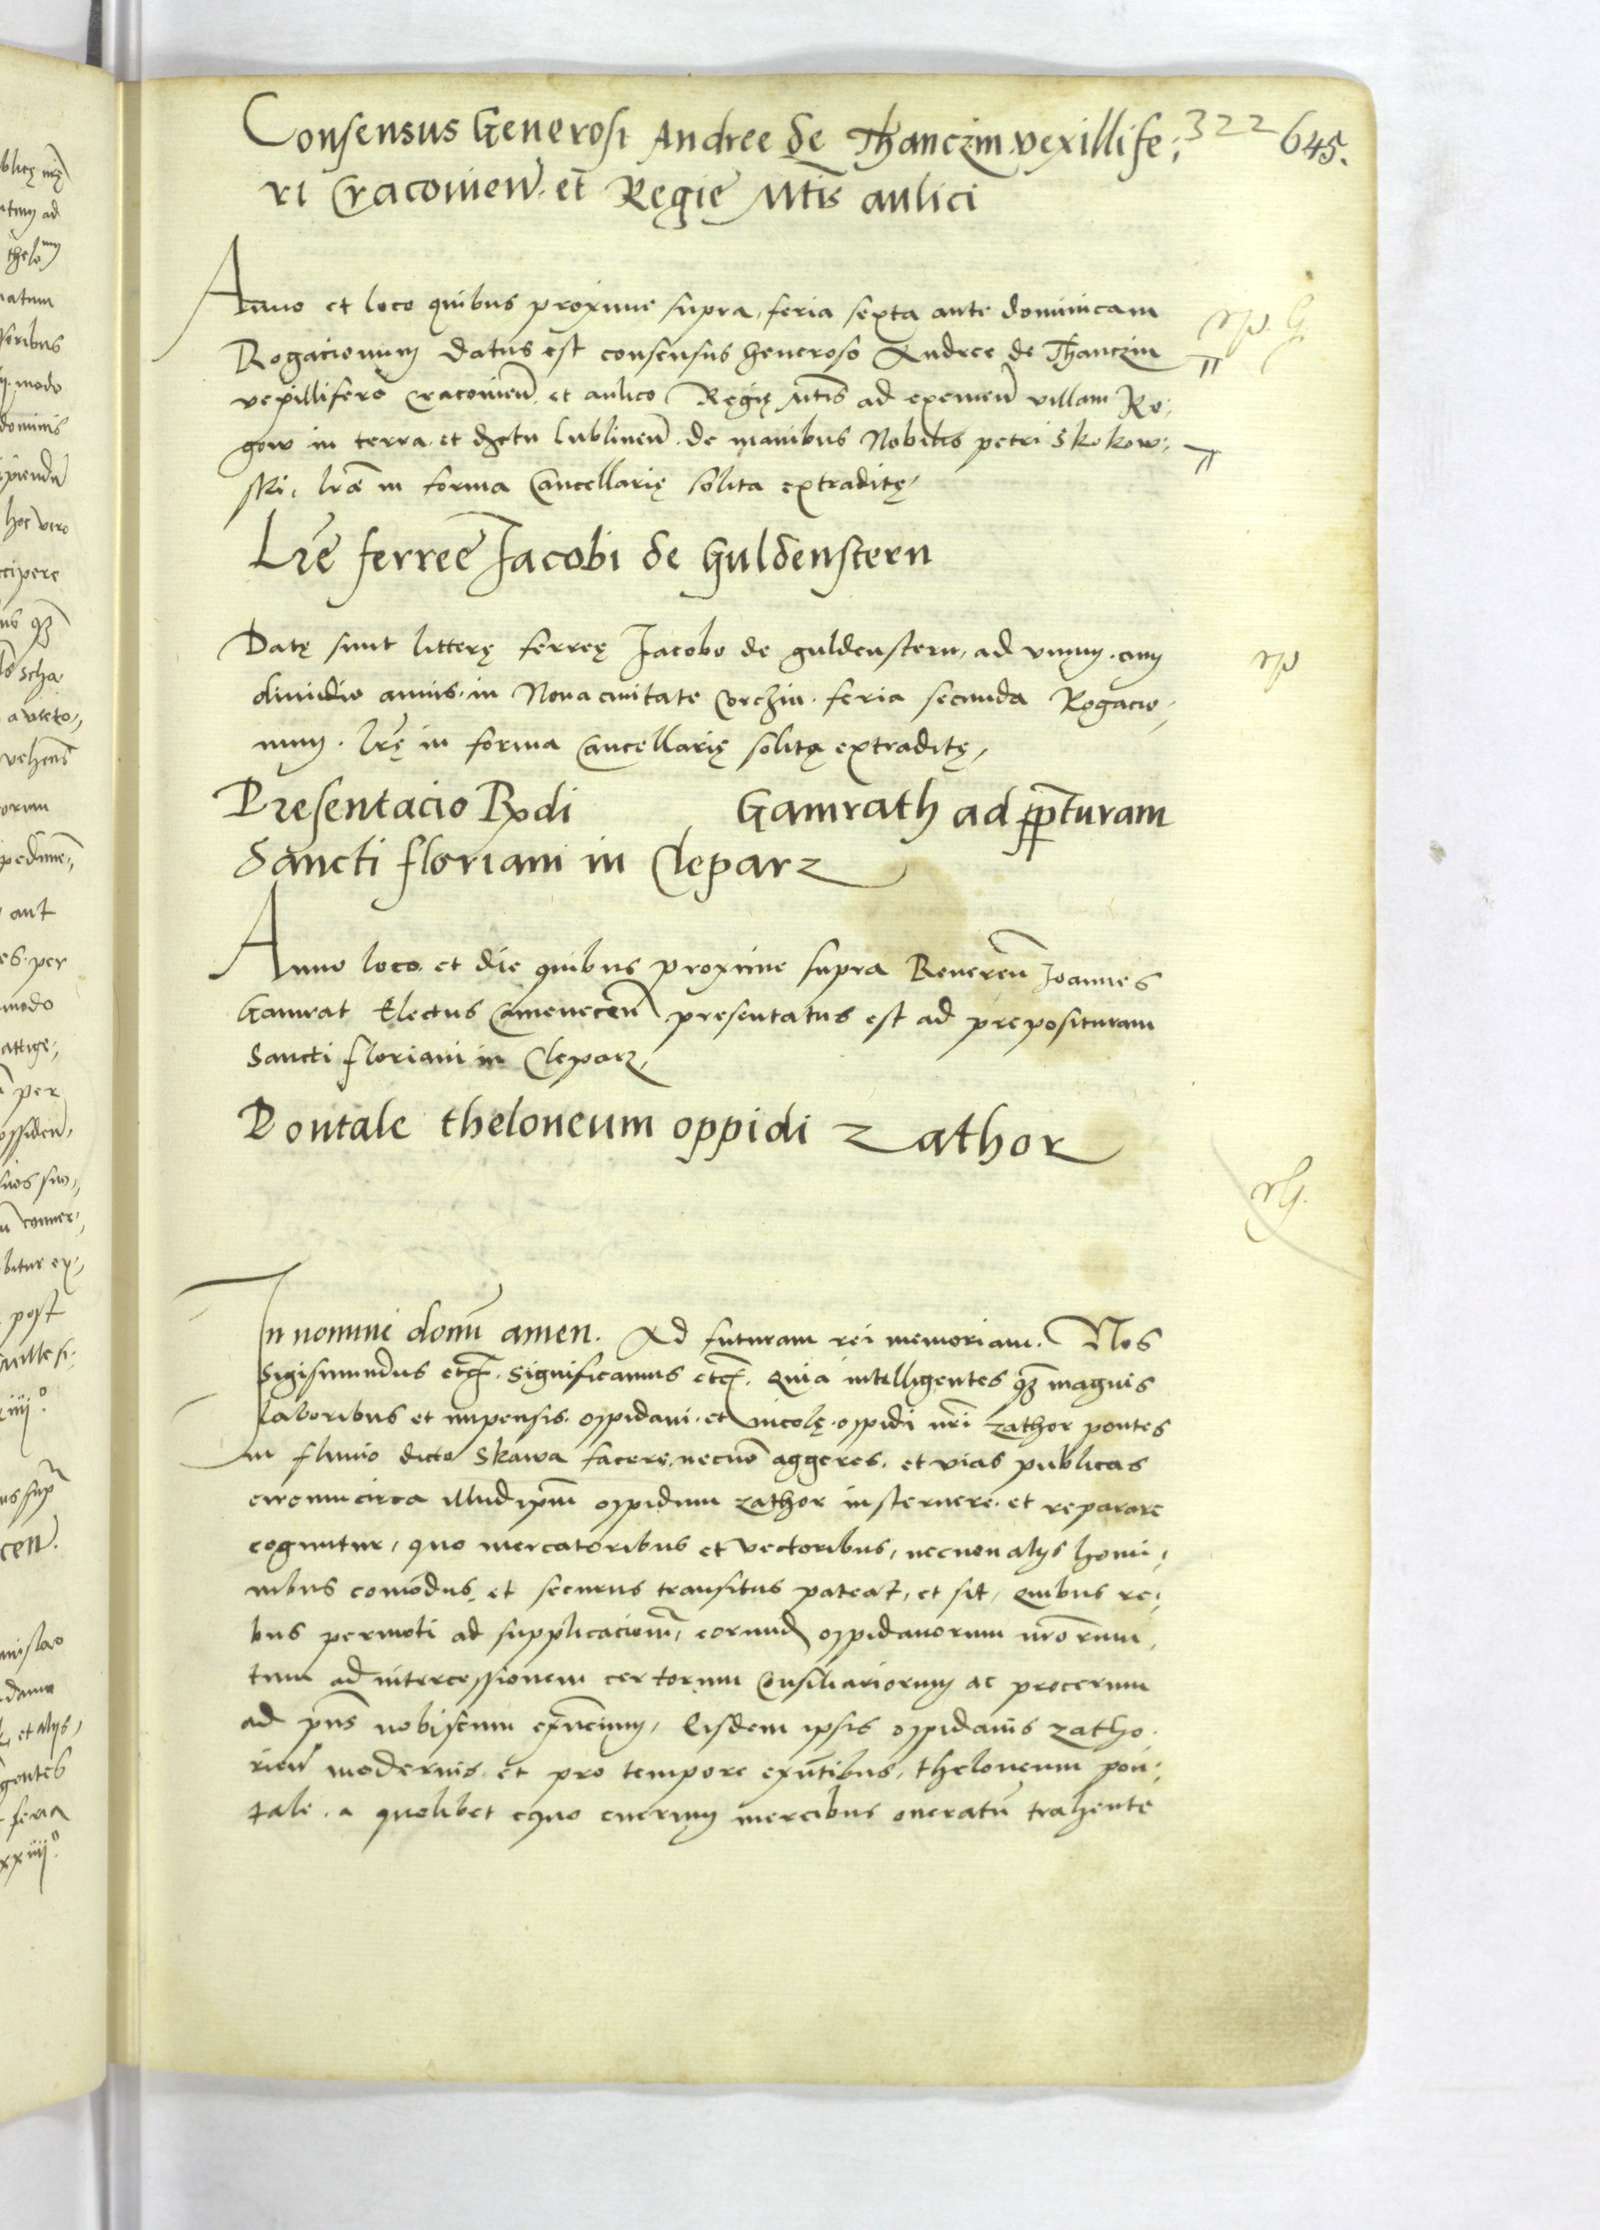 322 645.
Consensus Generosi Andree de Thanczin vexillife:
ri Cracovien̄. et Regie Mt̄is aulici
Anno et loco quibus proxime supra, feria sexta ante dominicam
Rogacionum datus est consensus generoso Andree de Thanczin
vexillifero Cracovien̄. et aulico Regię Mt̄is ad exemen̄ villam Ro:
gow in terra et dȝctu lublinen̄. de manibus Nobilis petri Skokow:
ski, lr̄æ in forma Cancellarię solita extraditę,
Lr̄e ferree Jacobi de Guldenstern
Datę sunt litterę ferreę Jacobo de guldenstern, ad unum cum
dimidio annis, in Nova civitate Corczin. feria secunda Rogacio:
num. lr̄ę in forma Cancellarię solita extraditę,
Presentacio Rx̄di Gamrath ad pp̄turam
Sancti floriani in Cleparz
Anno loco et die quibus proxime supra Reveren̄ Joannes
Gamrat Electus Camenecen̄ presentatus est ad preposituram
Sancti floriani in Cleparz,
Pontale theloneum oppidi Zathor
In nomine domī amen. Ad futuram rei memoriam. Nos
Sigismundus etc̄. Significamus etc̄. Quia intelligentes qȝ magnis
laboribus et impensis oppidani et incolę oppidi nr̄i Zathor pontes
in fluvio dicto Skawa facere, necnō aggeres et vias publicas
circumcirca illud ipm̄ oppidum Zathor insternere et reparare
coguntur, quo mercatoribus et vectoribus, necnon alijs homi:
nibus comōdus et securus transitus pateat, et sit, Quibus re:
bus permoti ad supplicacionē, eorund̄ oppidanorum nr̄orum,
tum ad intercessionem certorum Consiliariorum ac procerum
ad pn̄s nobiscum exn̄cium, Eisdem ipsis oppidanis Zatho:
rien̄ modernis et pro tempore exn̄tibus, theloneum pon:
tale. a quolibet equo currum mercibus oneratū trahente